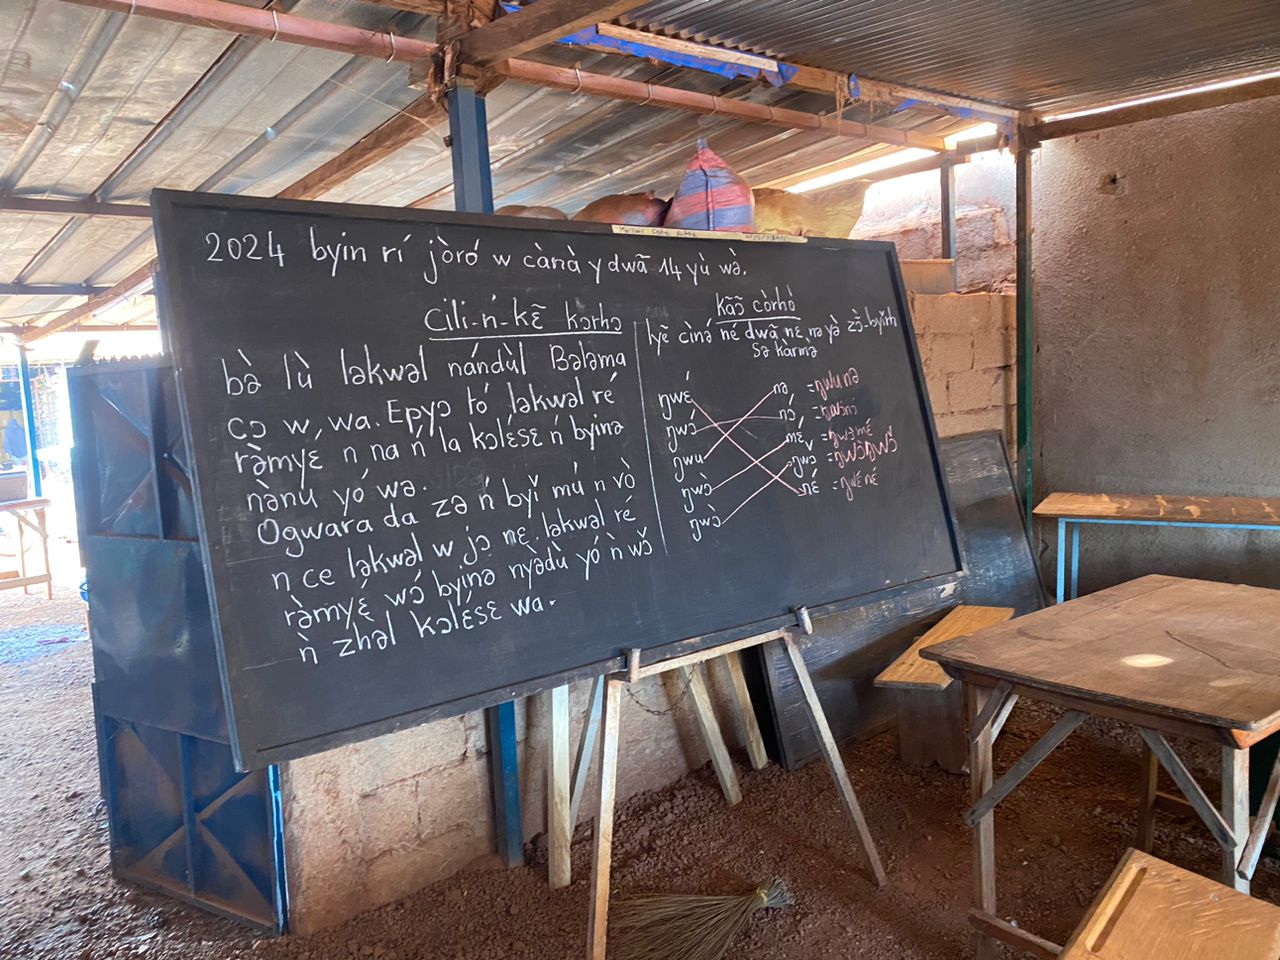 2024 byin rí jòró w cànà y dwã 14 yù wə̀.
Cili-ń-kɛ̃ kɔrhɔ
bə̀ lù ləkwəl nándùl Bələma
cɔ w, wa. Epyɔ tó ləkwəl ré
rə̀myɛ́ n na ń la kɔlɛ́sɛ ń byinə
nànú yó wə.
Ogwara da zə ń byǐ mú n vò
n ce ləkwəl w jɔ nɛ. ləkwəl ré
rə̀myɛ́ wɔ́ byinə nyə̀dù yó ǹ wɔ̌
ǹ zhəl kɔlɛ́sɛ wa.
kãɔ̃ còrhò
lyẽ cìnə́ né dwã nɛ nə yə̀ zɔ̃̀-byǐrh
sə kàrmə̀
ŋwɛ́ nə = ŋwunə
ŋwɔ́ nɔ́ = ŋwɔ́nɔ́
ŋwu mɛ́ = ŋwəmɛ́
ŋwɔ̀ ŋwɔ̌ = ŋwɔ̀ŋwɔ̌
ŋwɔ̀ nɛ́ = ŋwɛ́nɛ́